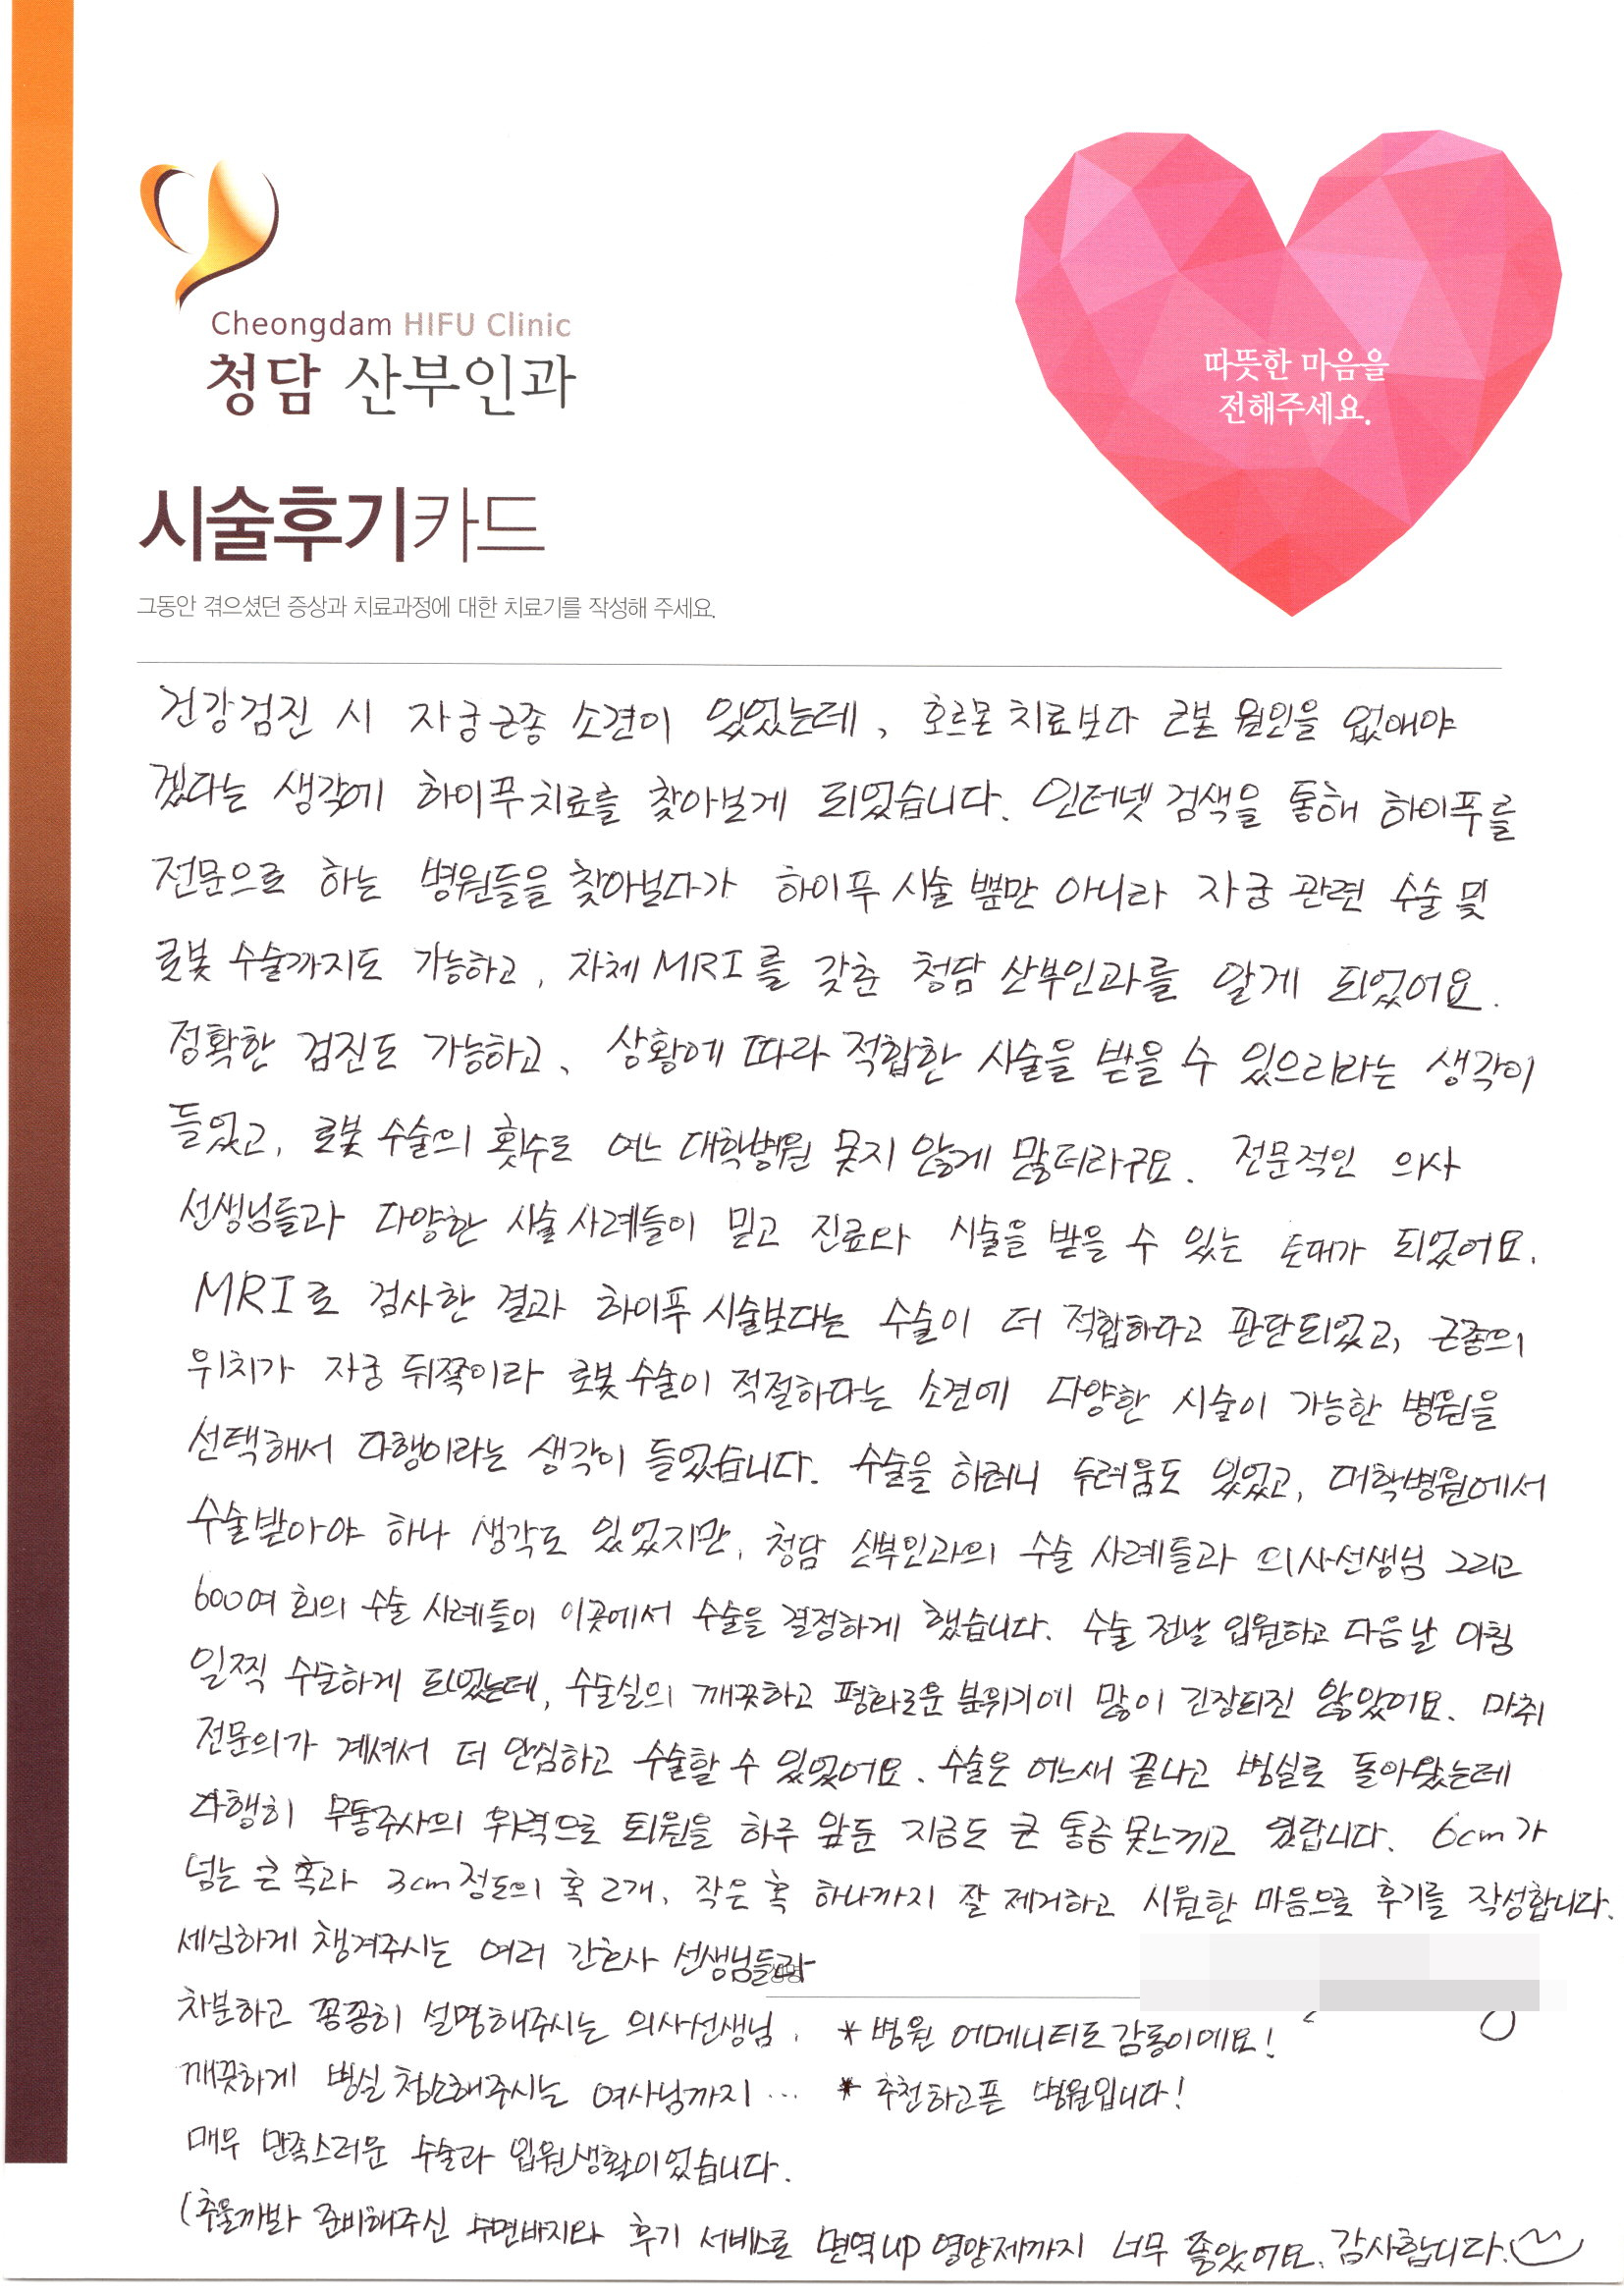 Cheongdam HIFU Clinic
청담 산부인과
따뜻한 마음을
전해주세요.
시술후기카드
그동안 겪으셨던 증상과 치료과정에 대한 치료기를 작성해 주세요.
건강검진 시 자궁근종 소견이 있었는데, 호르몬 치료보다 근본 원인을 없애야
겠다는 생각에 하이푸치료를 찾아보게 되었습니다. 인터넷 검색을 통해 하이푸를
전문으로 하는 병원들을 찾아보다가 하이푸 시술 뿐만 아니라 자궁 관련 수술 및
로봇 수술까지도 가능하고, 자체 MRI를 갖춘 청담 산부인과를 알게 되었어요.
정확한 검진도 가능하고, 상황에 따라 적합한 시술을 받을 수 있으리라는 생각이
들었고, 로봇 수술의 횟수도 여느 대학병원 못지 않게 많더라구요. 전문적인 의사
선생님들과 다양한 시술 사례들이 믿고 진료와 시술을 받을 수 있는 토대가 되었어요.
MRI로 검사한 결과 하이푸 시술보다는 수술이 더 적합하다고 판단되었고, 근종의
위치가 자궁 뒤쪽이라 로봇 수술이 적절하다는 소견에 다양한 시술이 가능한 병원을
선택해서 다행이라는 생각이 들었습니다. 수술을 하려니 두려움도 있었고, 대학병원에서
수술받아야 하나 생각도 있었지만, 청담 산부인과의 수술 사례들과 의사선생님 그리고
600여 회의 수술 사례들이 이곳에서 수술을 결정하게 했습니다. 수술 전날 입원하고 다음날 아침
일찍 수술하게 되었는데, 수술실의 깨끗하고 평화로운 분위기에 많이 긴장되진 않았어요. 마취
전문의가 계셔서 더 안심하고 수술할 수 있었어요. 수술은 어느새 끝나고 병실로 돌아왔는데
다행히 무통주사의 위력으로 퇴원을 하루 앞둔 지금도 큰 통증 못느끼고 있답니다. 6cm가
넘는 큰 혹과 3cm 정도의 혹 2개, 작은 혹 하나까지 잘 제거하고 시원한 마음으로 후기를 작성합니다.
세심하게 챙겨주시는 여러 간호사 선생님들과
성명
차분하고 꼼꼼히 설명해주시는 의사선생님, * 병원 어메니티도 감동이에요!
깨끗하게 병실 청소해주시는 여사님까지... * 추천하고픈 병원입니다!
매우 만족스러운 수술과 입원생활이었습니다.
(추울까봐 준비해주신 수면바지와 후기 서비스로 면역up 영양제까지 너무 좋았어요. 감사합니다.